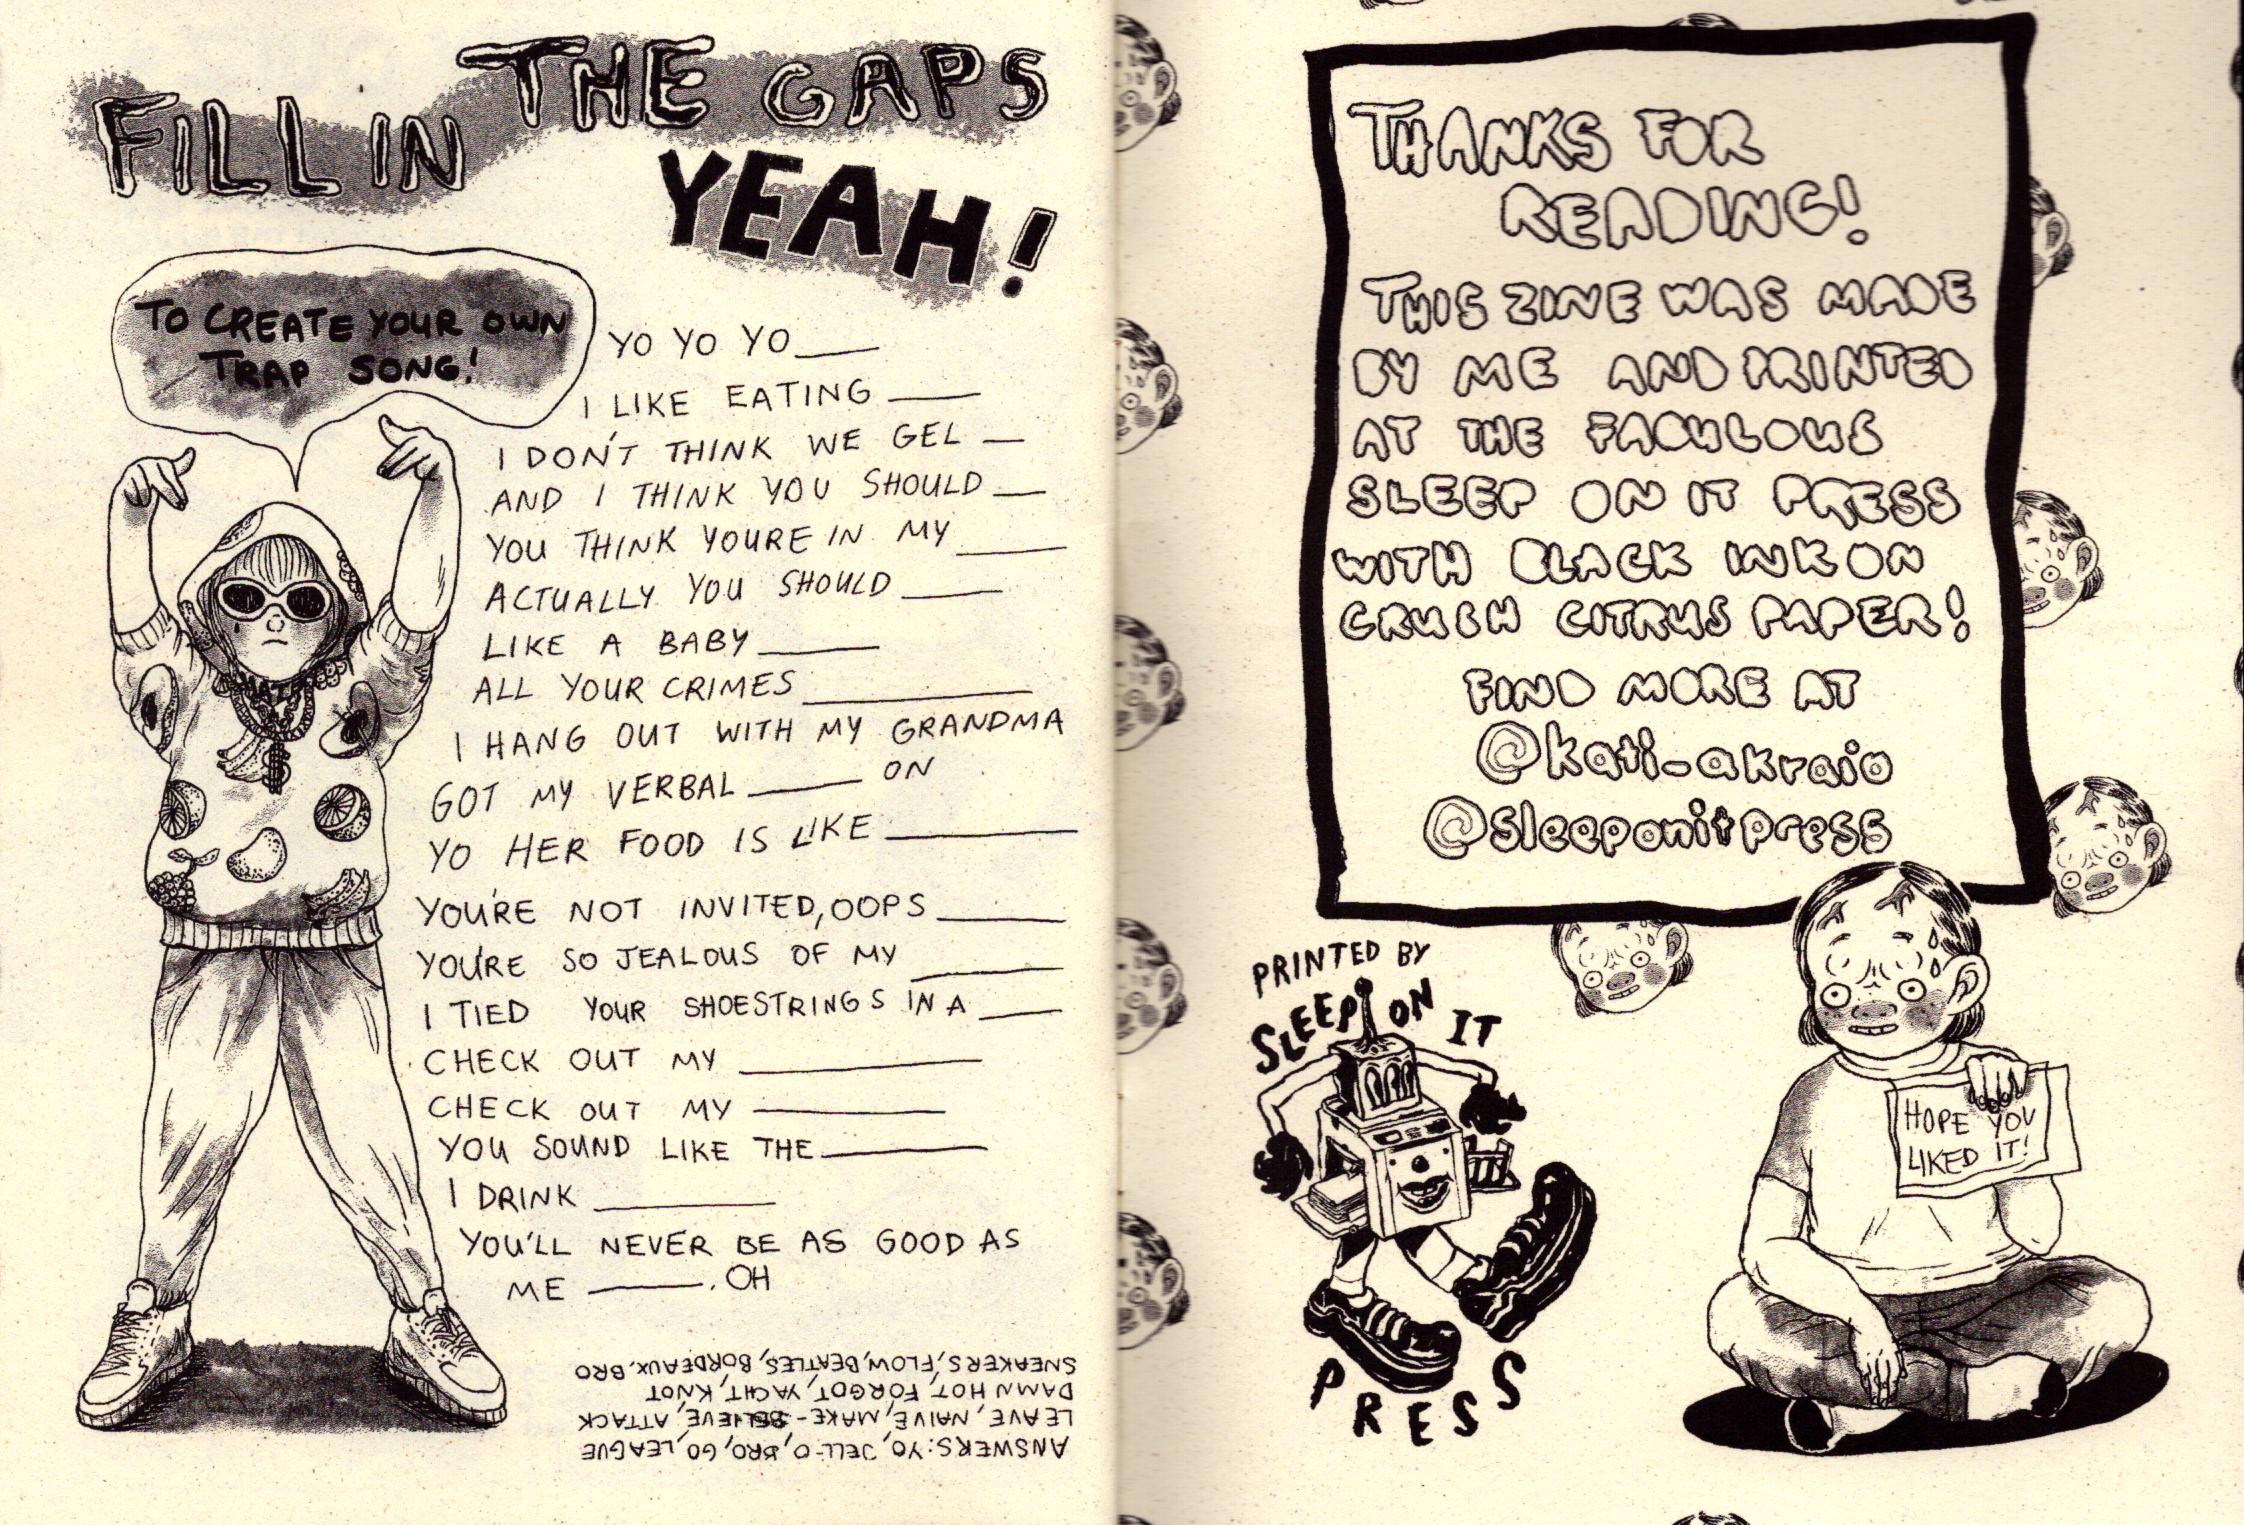 FILL IN THE GAPS
YEAH!
TO CREATE YOUR OWN
TRAP SONG!
YO YO YO___
I LIKE EATING ___
I DON'T THINK WE GEL ___
AND I THINK YOU SHOULD ___
YOU THINK YOURE IN MY ___
ACTUALLY YOU SHOULD ___
LIKE A BABY ___
ALL YOUR CRIMES ___
I HANG OUT WITH MY GRANDMA
GOT MY VERBAL ___ ON
YO HER FOOD IS LIKE ___
YOU'RE NOT INVITED, OOPS ___
YOU'RE SO JEALOUS OF MY ___
I TIED YOUR SHOESTRINGS IN A ___
CHECK OUT MY ___
CHECK OUT MY ___
YOU SOUND LIKE THE ___
I DRINK ___
YOU'LL NEVER BE AS GOOD AS
ME ___. OH
ANSWERS: YO, JELL-O, BRO, GO, LEAGUE
LEAVE, NAIVE, MAKE-BELIEVE, ATTACK
DAMN HOT, FORGOT, YACHT, KNOT
SNEAKERS, FLOW, BEATLES, BORDEAUX, BRO
THANKS FOR
READING!
THIS ZINE WAS MADE
BY ME AND PRINTED
AT THE FABULOUS
SLEEP ON IT PRESS
WITH BLACK INK ON
CRUSH CITRUS PAPER!
FIND MORE AT
@kati-akraio
@sleeponitpress
PRINTED BY
SLEEP ON IT
PRESS
HOPE YOU
LIKED IT!